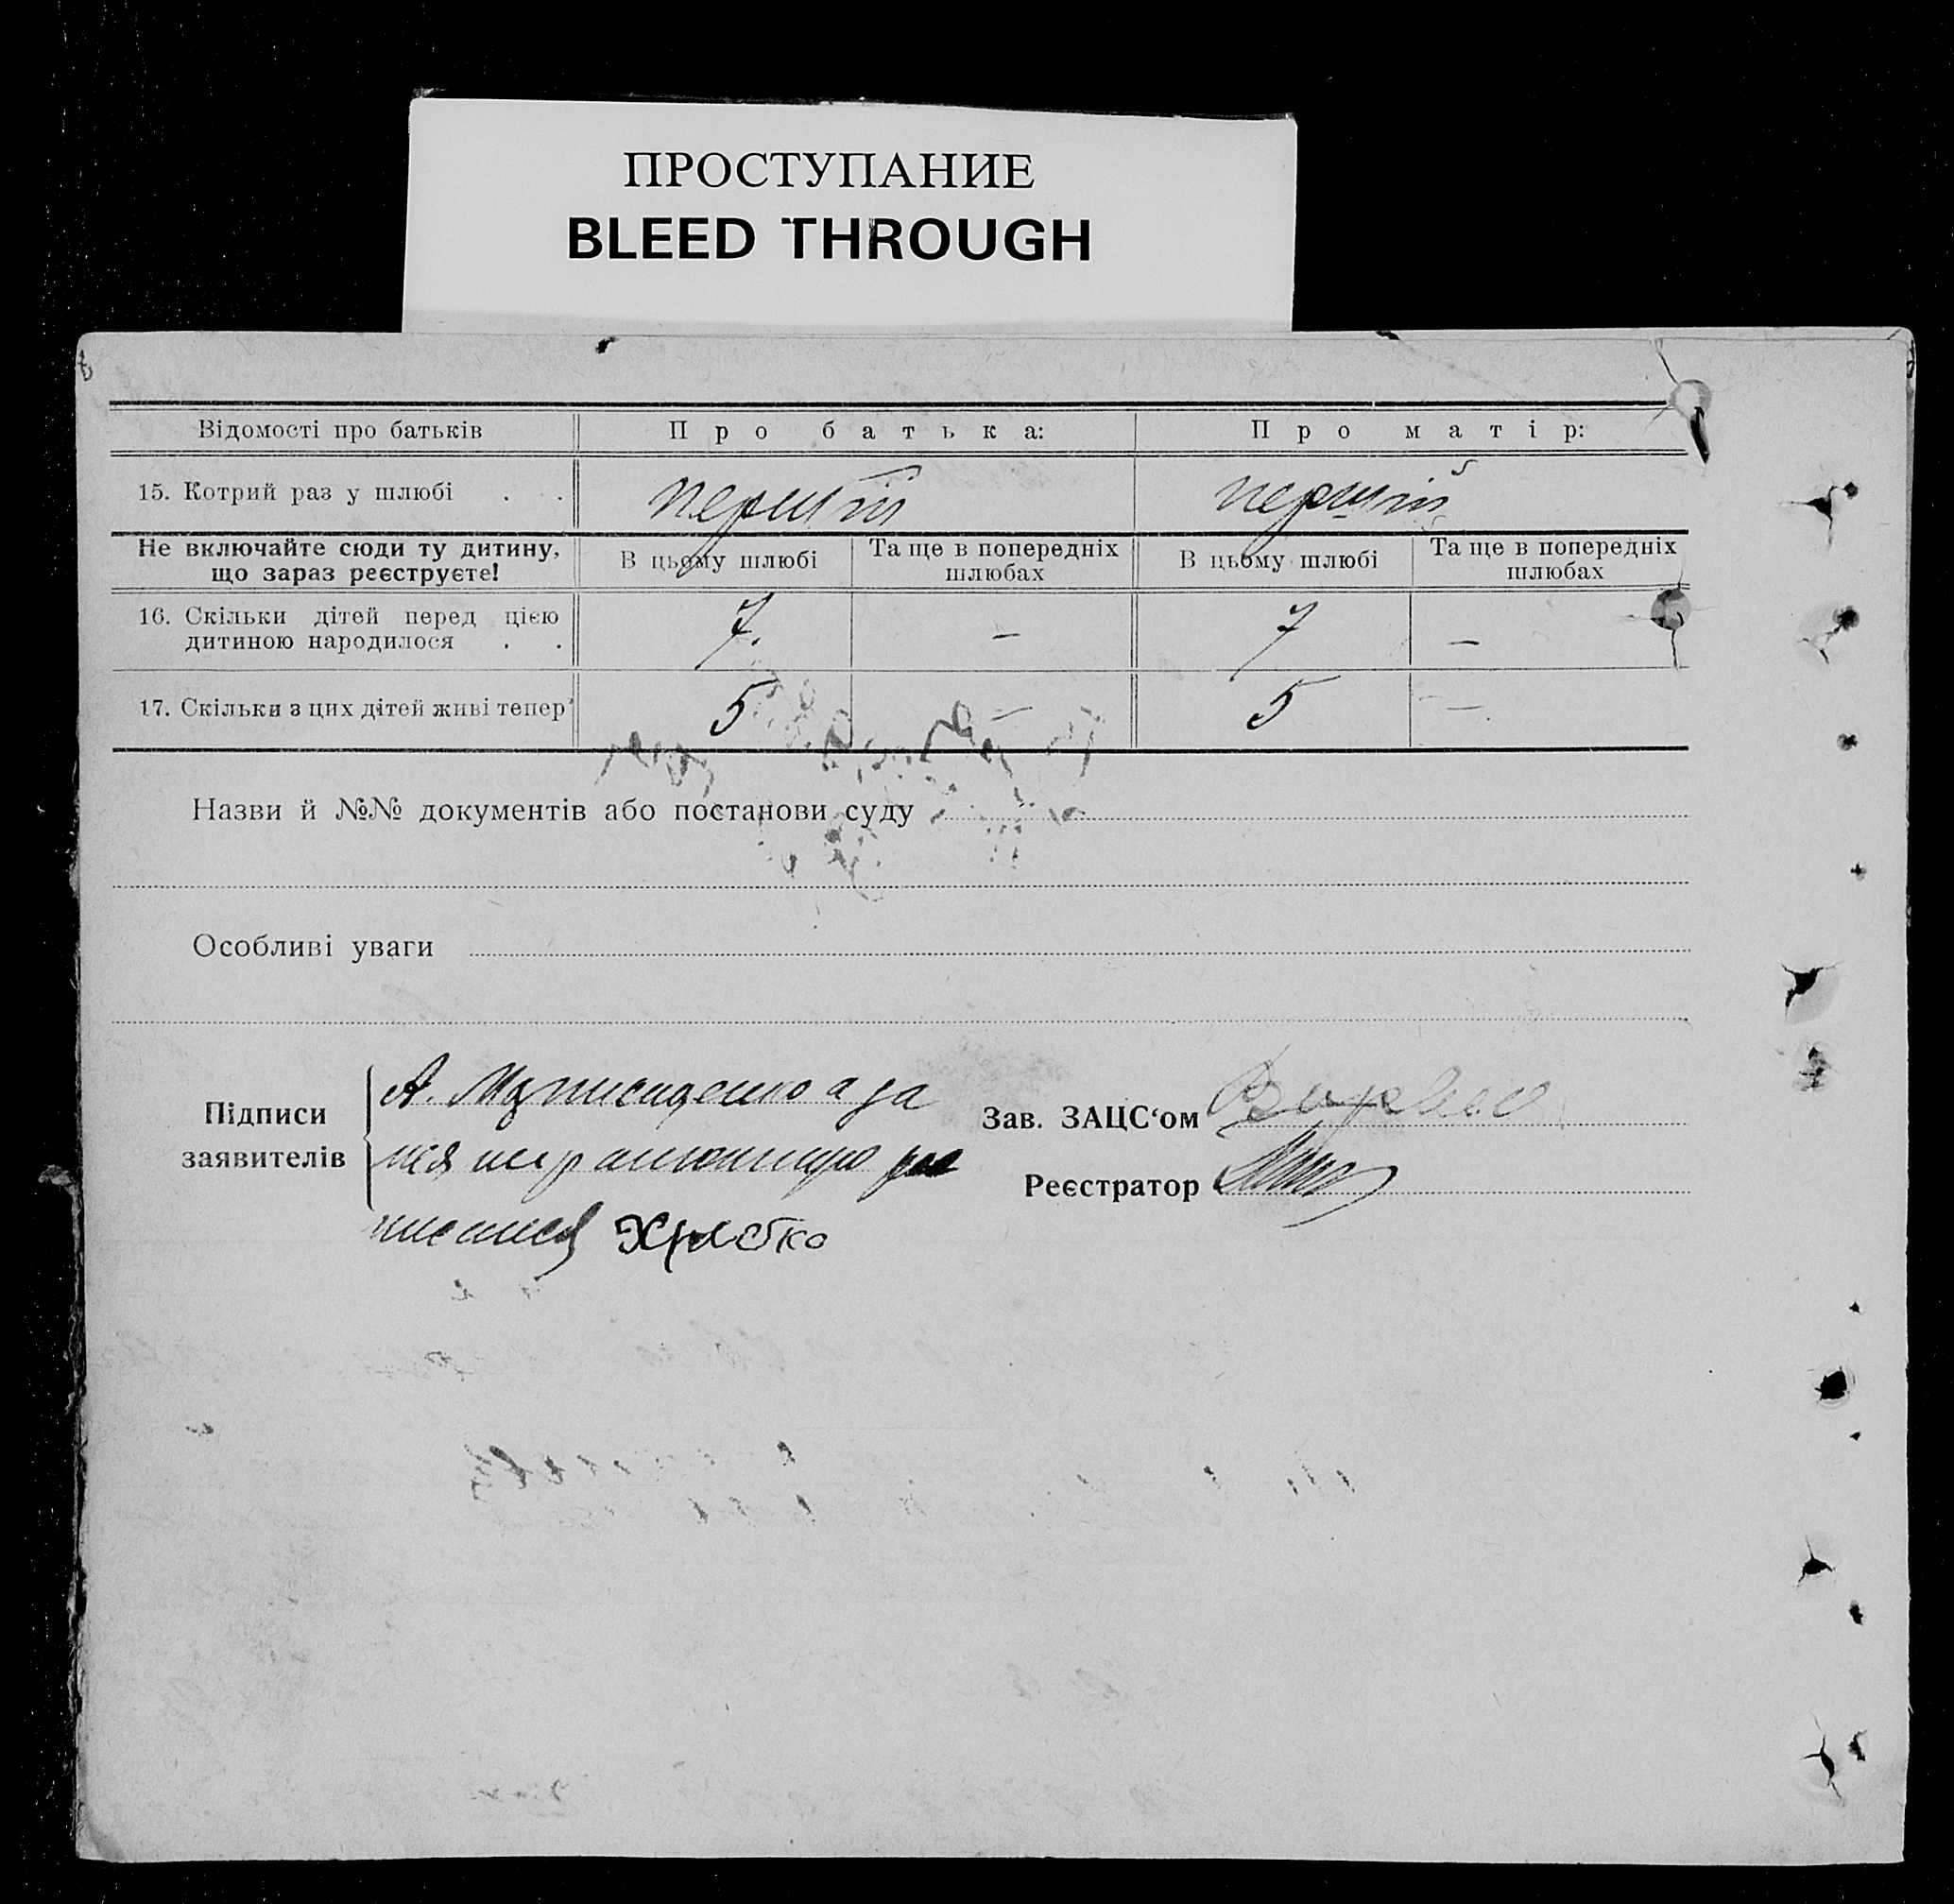 ПРОСТУПАНИЕ
BLEED THROUGH
Відомості про батьків Про батька: Про матір:
15. Котрий раз у шлюбі . . перший перший
Не включайте сюди ту дитину, що зараз реєструєте! В цьому шлюбі Та ще в попередніх шлюбах В цьому шлюбі Та ще в попередніх шлюбах
16. Скільки дітей перед цією дитиною народилося . . 7. — 7 —
17. Скільки з цих дітей живі тепер 5 — 5 —
Назви й №№ документів або постанови суду
Особливі уваги
Підписи заявителів
А. а за
неграмотного
Зав. ЗАЦС‘ом
Реєстратор